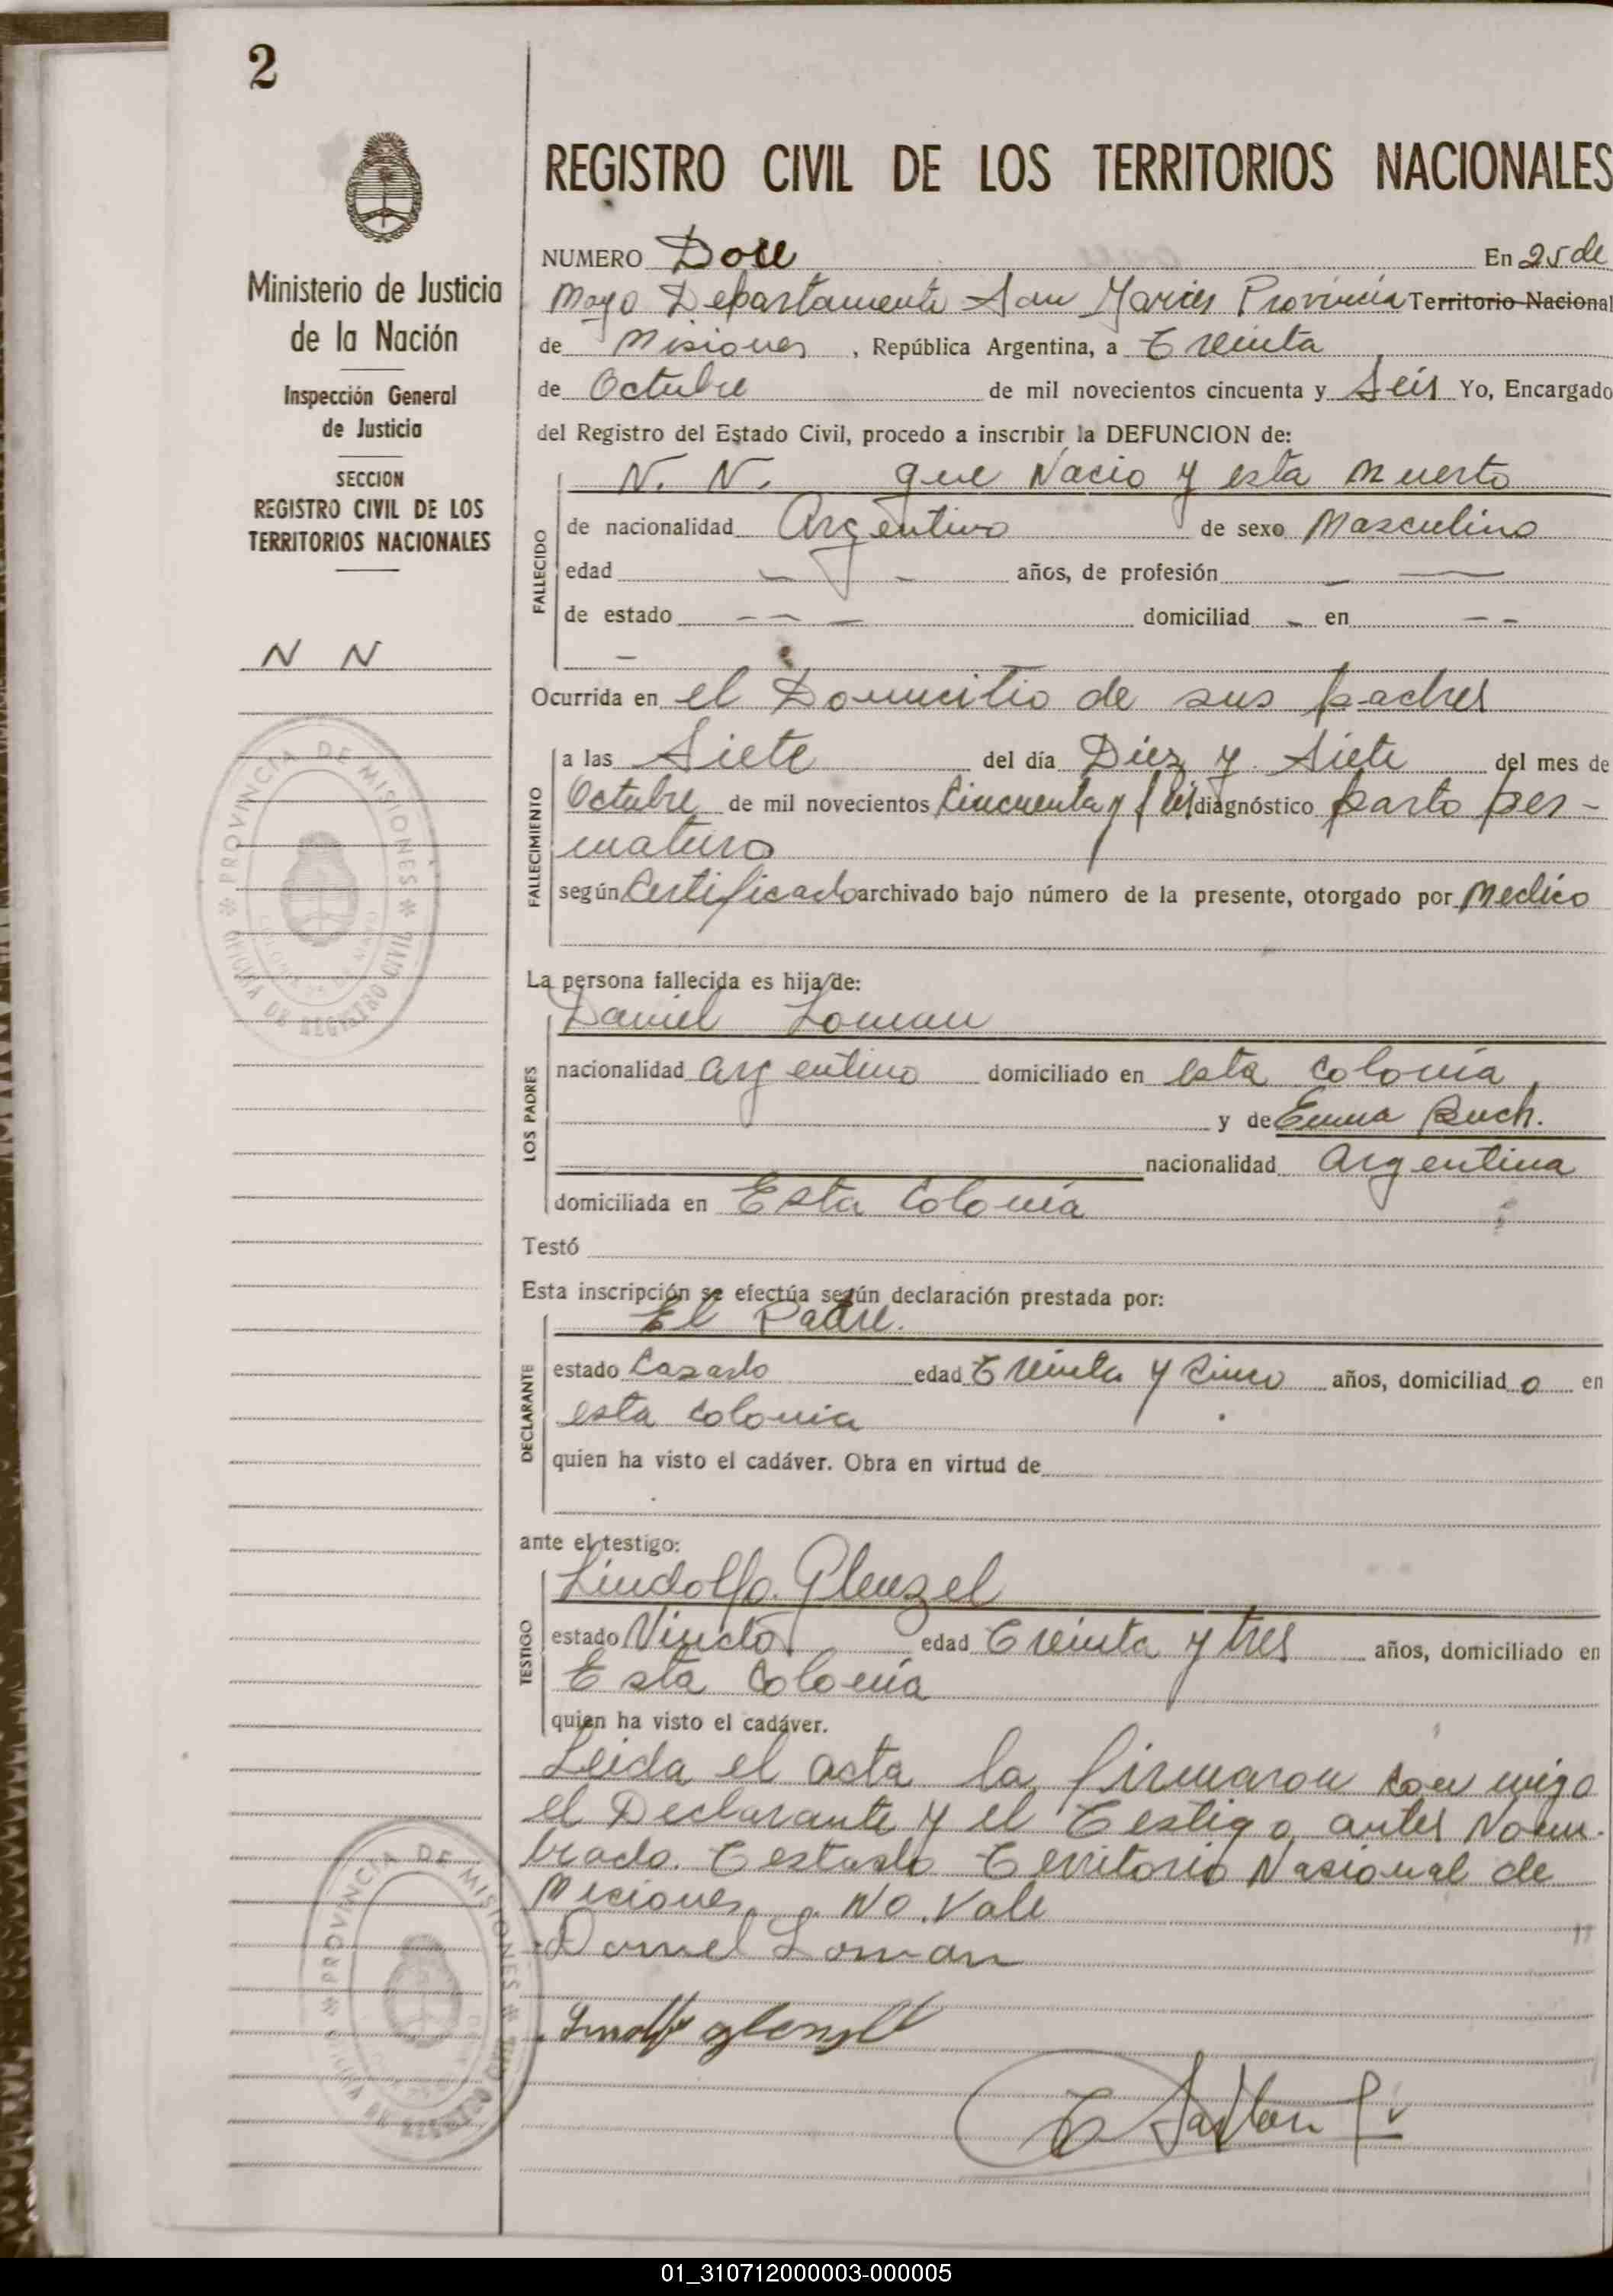 2
Ministerio de Justicia
de la Nación
Inspección General
de Justicia
SECCION
REGISTRO CIVIL DE LOS
TERRITORIOS NACIONALES
N N
PROVINCIA DE MISIONES
OFICINA DE REGISTRO CIVIL
REGISTRO CIVIL DE LOS TERRITORIOS NACIONALES
NUMERO Doce En 25 de
Mayo Departamento San Javier Provincia Territorio Nacional
de Misiones, República Argentina, a Treinta
de Octubre de mil novecientos cincuenta y Seis Yo, Encargado
del Registro del Estado Civil, procedo a inscribir la DEFUNCION de:
FALLECIDO
N. N. que Nacio y esta Muerto
de nacionalidad Argentino de sexo Masculino
edad — — años, de profesión — —
de estado — — — domiciliad - en — —
—
Ocurrida en el Domicilio de sus padres
FALLECIMIENTO
a las Siete del día Diez y Siete del mes de
Octubre de mil novecientos Cincuenta y Seis diagnóstico parto per-
maturo
según Certificado archivado bajo número de la presente, otorgado por Medico
La persona fallecida es hija/de:
LOS PADRES
Daniel Loman
nacionalidad argentino domiciliado en esta colonia,
y de Emma Buch.
nacionalidad Argentina
domiciliada en Esta Colonia
Testó
Esta inscripción se efectúa según declaración prestada por:
DECLARANTE
El Padre.
estado Casado edad Treinta y Cinco años, domiciliad o en
esta colonia
quien ha visto el cadáver. Obra en virtud de
ante el testigo:
TESTIGO
Lindolfo Glenzel
estado Viudo edad Treinta y tres años, domiciliado en
Esta Colonia
quien ha visto el cadáver.
Leida el acta la firmaron con migo
el Declarante y el Testigo antes Nom-
brado. Testado Territorio Nasional de
Misiones. No. Vale
Daniel Loman
PROVINCIA DE MISIONES
01_310712000003-000005